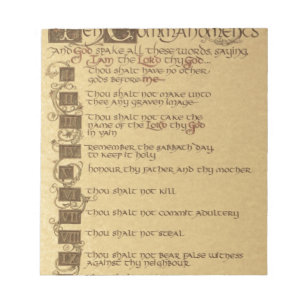 Ten Commandments
And God spake all these words, saying,
I am the Lord thy God...
I thou shalt have no other
gods before me—
II thou shalt not make unto
thee any graven image—
III thou shalt not take the
name of the Lord thy God
in vain
IV remember the sabbath day,
to keep it holy
V honour thy father and thy mother
VI thou shalt not kill
VII thou shalt not commit adultery
VIII thou shalt not steal
IX thou shalt not bear false witness
against thy neighbour